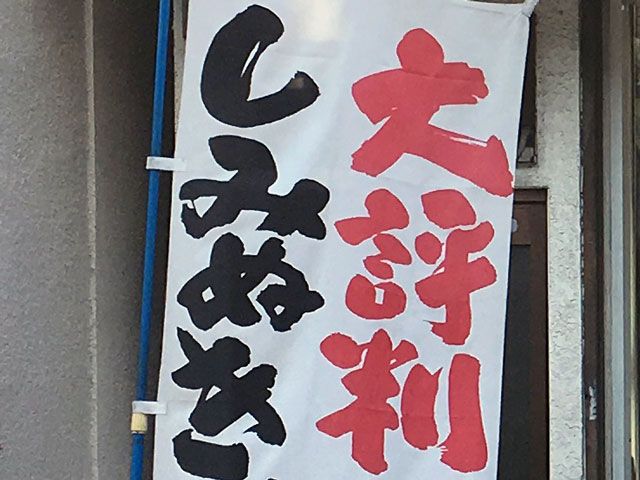 大評判
しみぬき